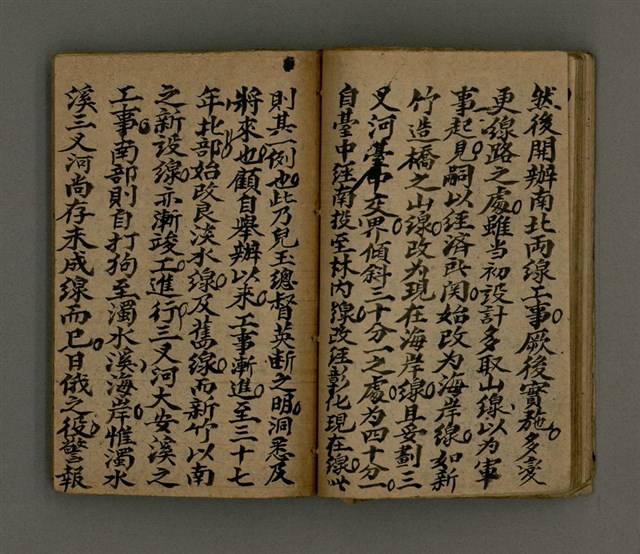 然後開辦南北両線工事厥後實施多変
更線路之處雖当初設計多取山線以为軍
事起見嗣以経済所関始改为海岸線如新
竹造橋之山線改为現在海岸線且妥劃三
叉河臺中交界傾斜三十分一之處为四十分一
自臺中経南投至林内線改経彰化現在線此
則其一例也此乃兒玉總督英断之明洞悉及
將來也顧自舉辦以来工事漸進至三十七
年北部始改良淡水線及舊線而新竹以南
之新設線亦漸竣工進行三叉河大安溪之
工事南部則自打狗至濁水溪海岸惟濁水
溪三叉河尚存未成線而已日俄之役警報